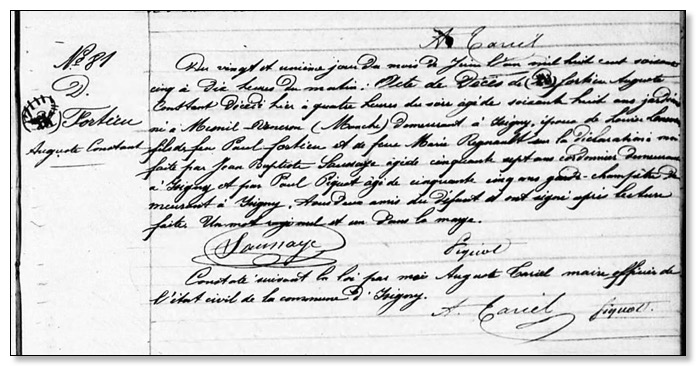 A Tariel
No 81
D.
Fortieu
Auguste Constant
Du vingt et unième jour du mois de Juin l'an mil huit cent soixante
cinq à Dix heures du matin. Acte de Décès de fortieu Auguste
Constant Décédé hier à quatre heures du soir âgé de soixante huit ans
né à Mesnil (Manche) Demeurant à Isigny, époux de Louise
fils de feu Paul fortieu et de feue Marie Regnault sur la Déclaration à moi
faite par Jean Baptiste Saussaye âgé de cinquante sept ans cordonnier Demeurant
à Isigny et par Paul Piquot âgé de cinquante cinq ans garde-champêtre De
meurant à Isigny. tous deux amis du défunt et ont signé après lecture
faite. Un mot nul et un dans la marge.
Saussaye Piquot
Constaté suivant la loi par moi Auguste Tariel maire officier de
l'état civil de la commune d'Isigny.
A. Tariel Piquot.